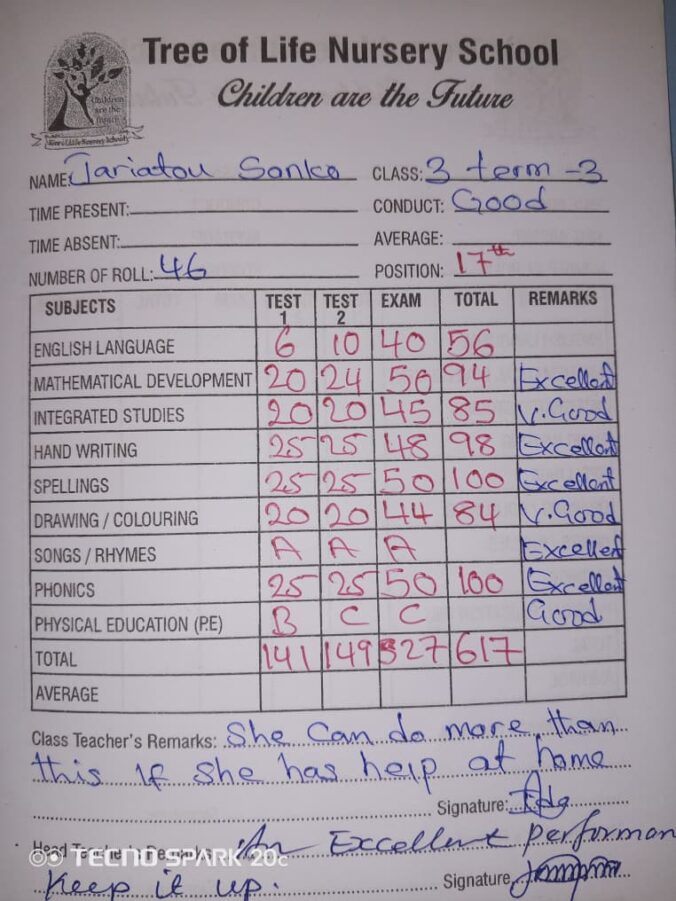 Tree of Life Nursery School
Children are the Future
Children are the Future
NAME: Jariatou Sonko CLASS: 3 term -3
TIME PRESENT: CONDUCT: Good
TIME ABSENT: AVERAGE:
NUMBER OF ROLL: 46 POSITION: 17th
SUBJECTS TEST 1 TEST 2 EXAM TOTAL REMARKS
ENGLISH LANGUAGE 6 10 40 56
MATHEMATICAL DEVELOPMENT 20 24 50 94 Excellent
INTEGRATED STUDIES 20 20 45 85 V. Good
HAND WRITING 25 25 48 98 Excellent
SPELLINGS 25 25 50 100 Excellent
DRAWING / COLOURING 20 20 44 84 V. Good
SONGS / RHYMES A A A Excellent
PHONICS 25 25 50 100 Excellent
PHYSICAL EDUCATION (P.E) B C C Good
TOTAL 141 149 327 617
AVERAGE
Class Teacher's Remarks: She Can do more than
this if she has help at home
Signature:
Head Teacher's Remarks: An Excellent performan
TECNO SPARK 20c
Keep it up. Signature